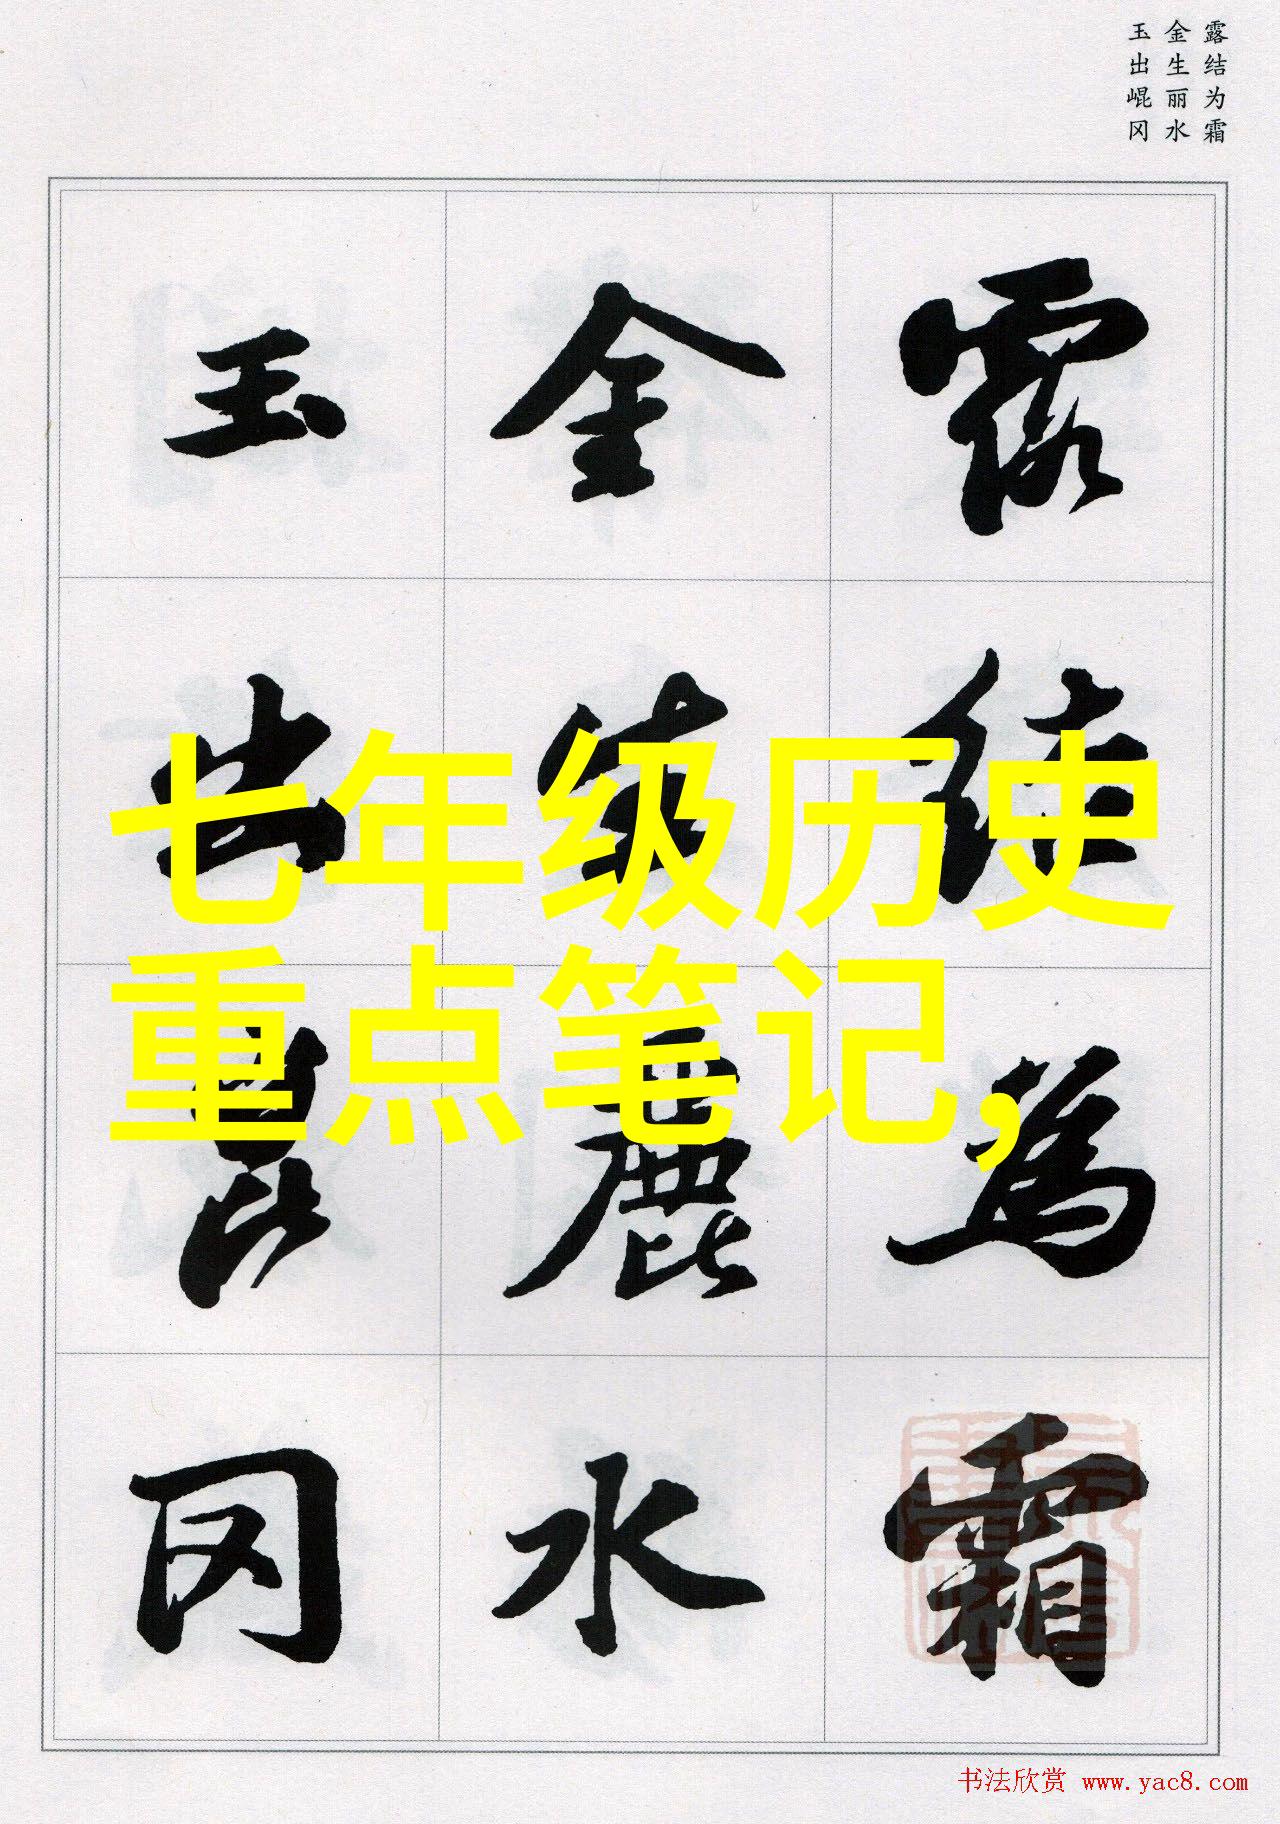 露结为霜
金生丽水
玉出崐冈
露結為霜
金生麗水
玉出崑冈
七年级历史
重点笔记,
书法欣赏 www.yac8.com